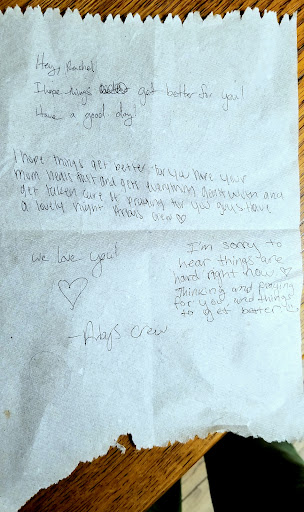 Hey, Rachel!
I hope things get better for you!
Have a good day!
I hope things get better for you hope your
mom heals fast and gets everything dealt with and
get taken care of praying for you guys have
a lovely night Arbys crew ♡
We love you!
♡
-Arbys crew
I'm sorry to
hear things are
hard right now ♡
Thinking and praying
for you, and things
to get better